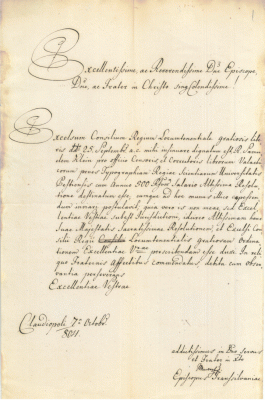 Excellentissime, ac Reverendissime Dne Episcope,
Dne, ac Frater in Christo singColendissime.
Excelsum Consilium Regium Locumtenentiale gratiosis litte
ris 25. Septembr. a. c. mihi insinuare dignatum est R. Samu
elem Klein pro officio Censoris et Correctoris librorum Valachi
corum penes Typographiam Regiae Universitatis
Pestiensis cum Annuo 300 Salario Altissima Resolu
tione destinatum esse,
diam inviarj postulans, quia vero is
lentiae Vestrae subest Jurisdictioni, idcirco Altissimam hanc
Suae Majestatis Sacratissimae Resolutionem, et Excelsi Con
silii Regii Locumtenentialis gratiosam Ordina
tionem Excellentiae praesentandam esse duxi. In reli
quo Fraternis Affectibus commendatus, debita cum obser
vantia persevero
Excellentiae Vestrae
Claudiopoli 7a Octobr
804.
addictissimus in servus
et Frater in Xto
Episcopus Transilvaniae